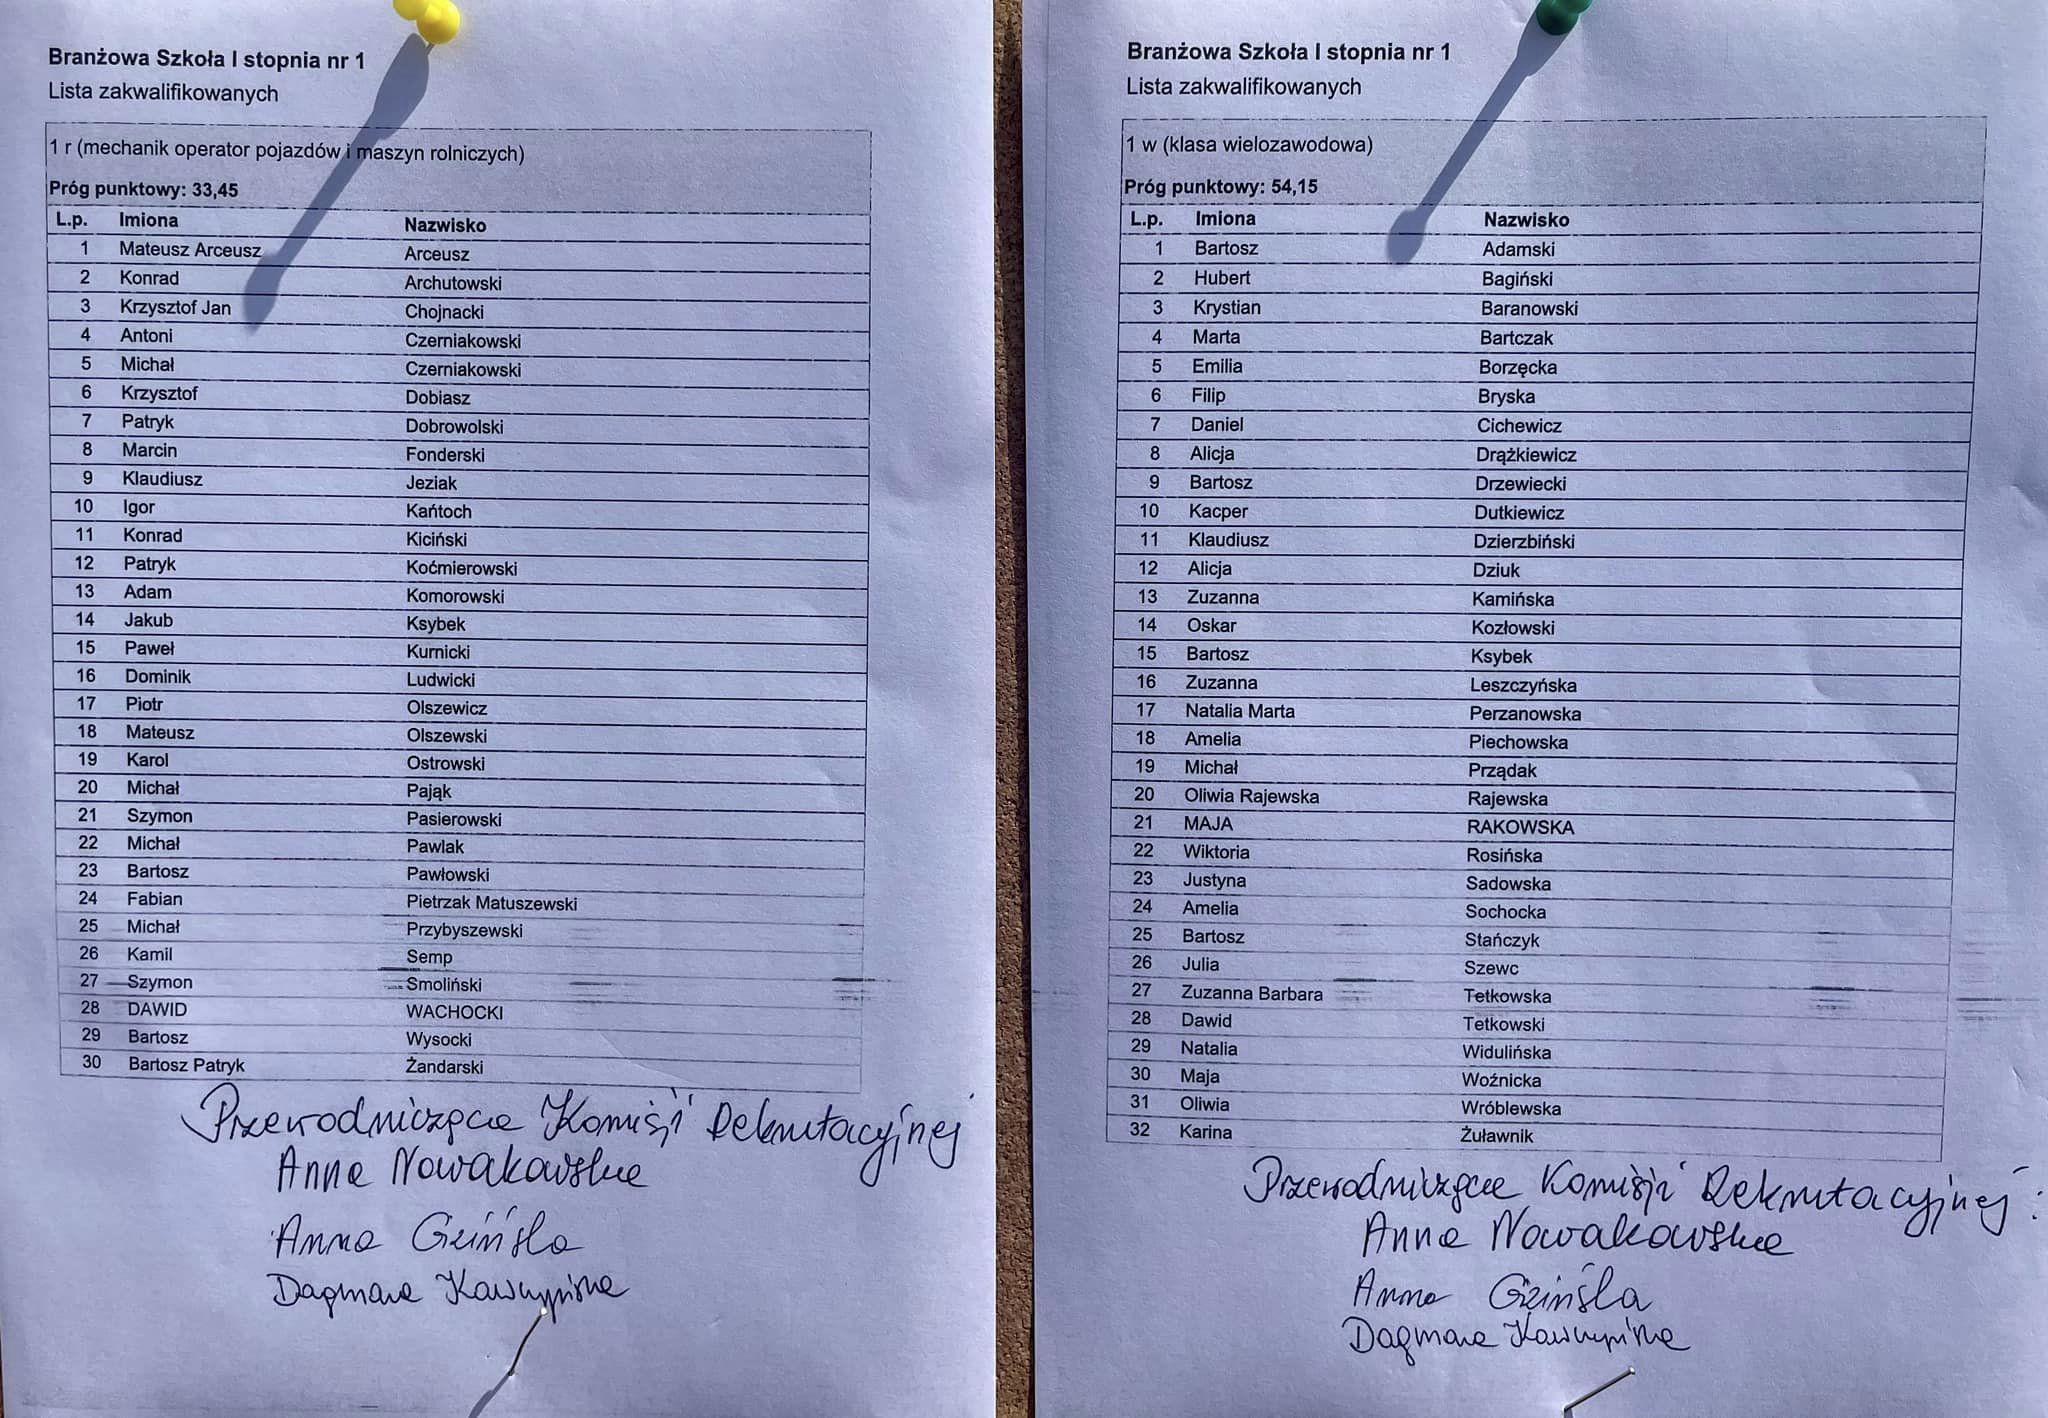 Branżowa Szkoła I stopnia nr 1
Lista zakwalifikowanych
1 r (mechanik operator pojazdów i maszyn rolniczych)
Próg punktowy: 33,45
L.p. Imiona Nazwisko
1 Mateusz Arceusz Arceusz
2 Konrad Archutowski
3 Krzysztof Jan Chojnacki
4 Antoni Czerniakowski
5 Michał Czerniakowski
6 Krzysztof Dobiasz
7 Patryk Dobrowolski
8 Marcin Fonderski
9 Klaudiusz Jeziak
10 Igor Kańtoch
11 Konrad Kiciński
12 Patryk Koćmierowski
13 Adam Komorowski
14 Jakub Ksybek
15 Paweł Kurnicki
16 Dominik Ludwicki
17 Piotr Olszewicz
18 Mateusz Olszewski
19 Karol Ostrowski
20 Michał Pająk
21 Szymon Pasierowski
22 Michał Pawlak
23 Bartosz Pawłowski
24 Fabian Pietrzak Matuszewski
25 Michał Przybyszewski
26 Kamil Semp
27 Szymon Smoliński
28 DAWID WACHOCKI
29 Bartosz Wysocki
30 Bartosz Patryk Żandarski
Przewodnicząca Komisji Rekrutacyjnej
Anna Nowakowska
Anna
Dagmara
Branżowa Szkoła I stopnia nr 1
Lista zakwalifikowanych
1 w (klasa wielozawodowa)
Próg punktowy: 54,15
L.p. Imiona Nazwisko
1 Bartosz Adamski
2 Hubert Bagiński
3 Krystian Baranowski
4 Marta Bartczak
5 Emilia Borzęcka
6 Filip Bryska
7 Daniel Cichewicz
8 Alicja Drążkiewicz
9 Bartosz Drzewiecki
10 Kacper Dutkiewicz
11 Klaudiusz Dzierzbiński
12 Alicja Dziuk
13 Zuzanna Kamińska
14 Oskar Kozłowski
15 Bartosz Ksybek
16 Zuzanna Leszczyńska
17 Natalia Marta Perzanowska
18 Amelia Piechowska
19 Michał Prządak
20 Oliwia Rajewska Rajewska
21 MAJA RAKOWSKA
22 Wiktoria Rosińska
23 Justyna Sadowska
24 Amelia Sochocka
25 Bartosz Stańczyk
26 Julia Szewc
27 Zuzanna Barbara Tetkowska
28 Dawid Tetkowski
29 Natalia Widulińska
30 Maja Woźnicka
31 Oliwia Wróblewska
32 Karina Żuławnik
Przewodniczące Komisji Rekrutacyjnej:
Anna Nowakowska
Anna
Dagmara